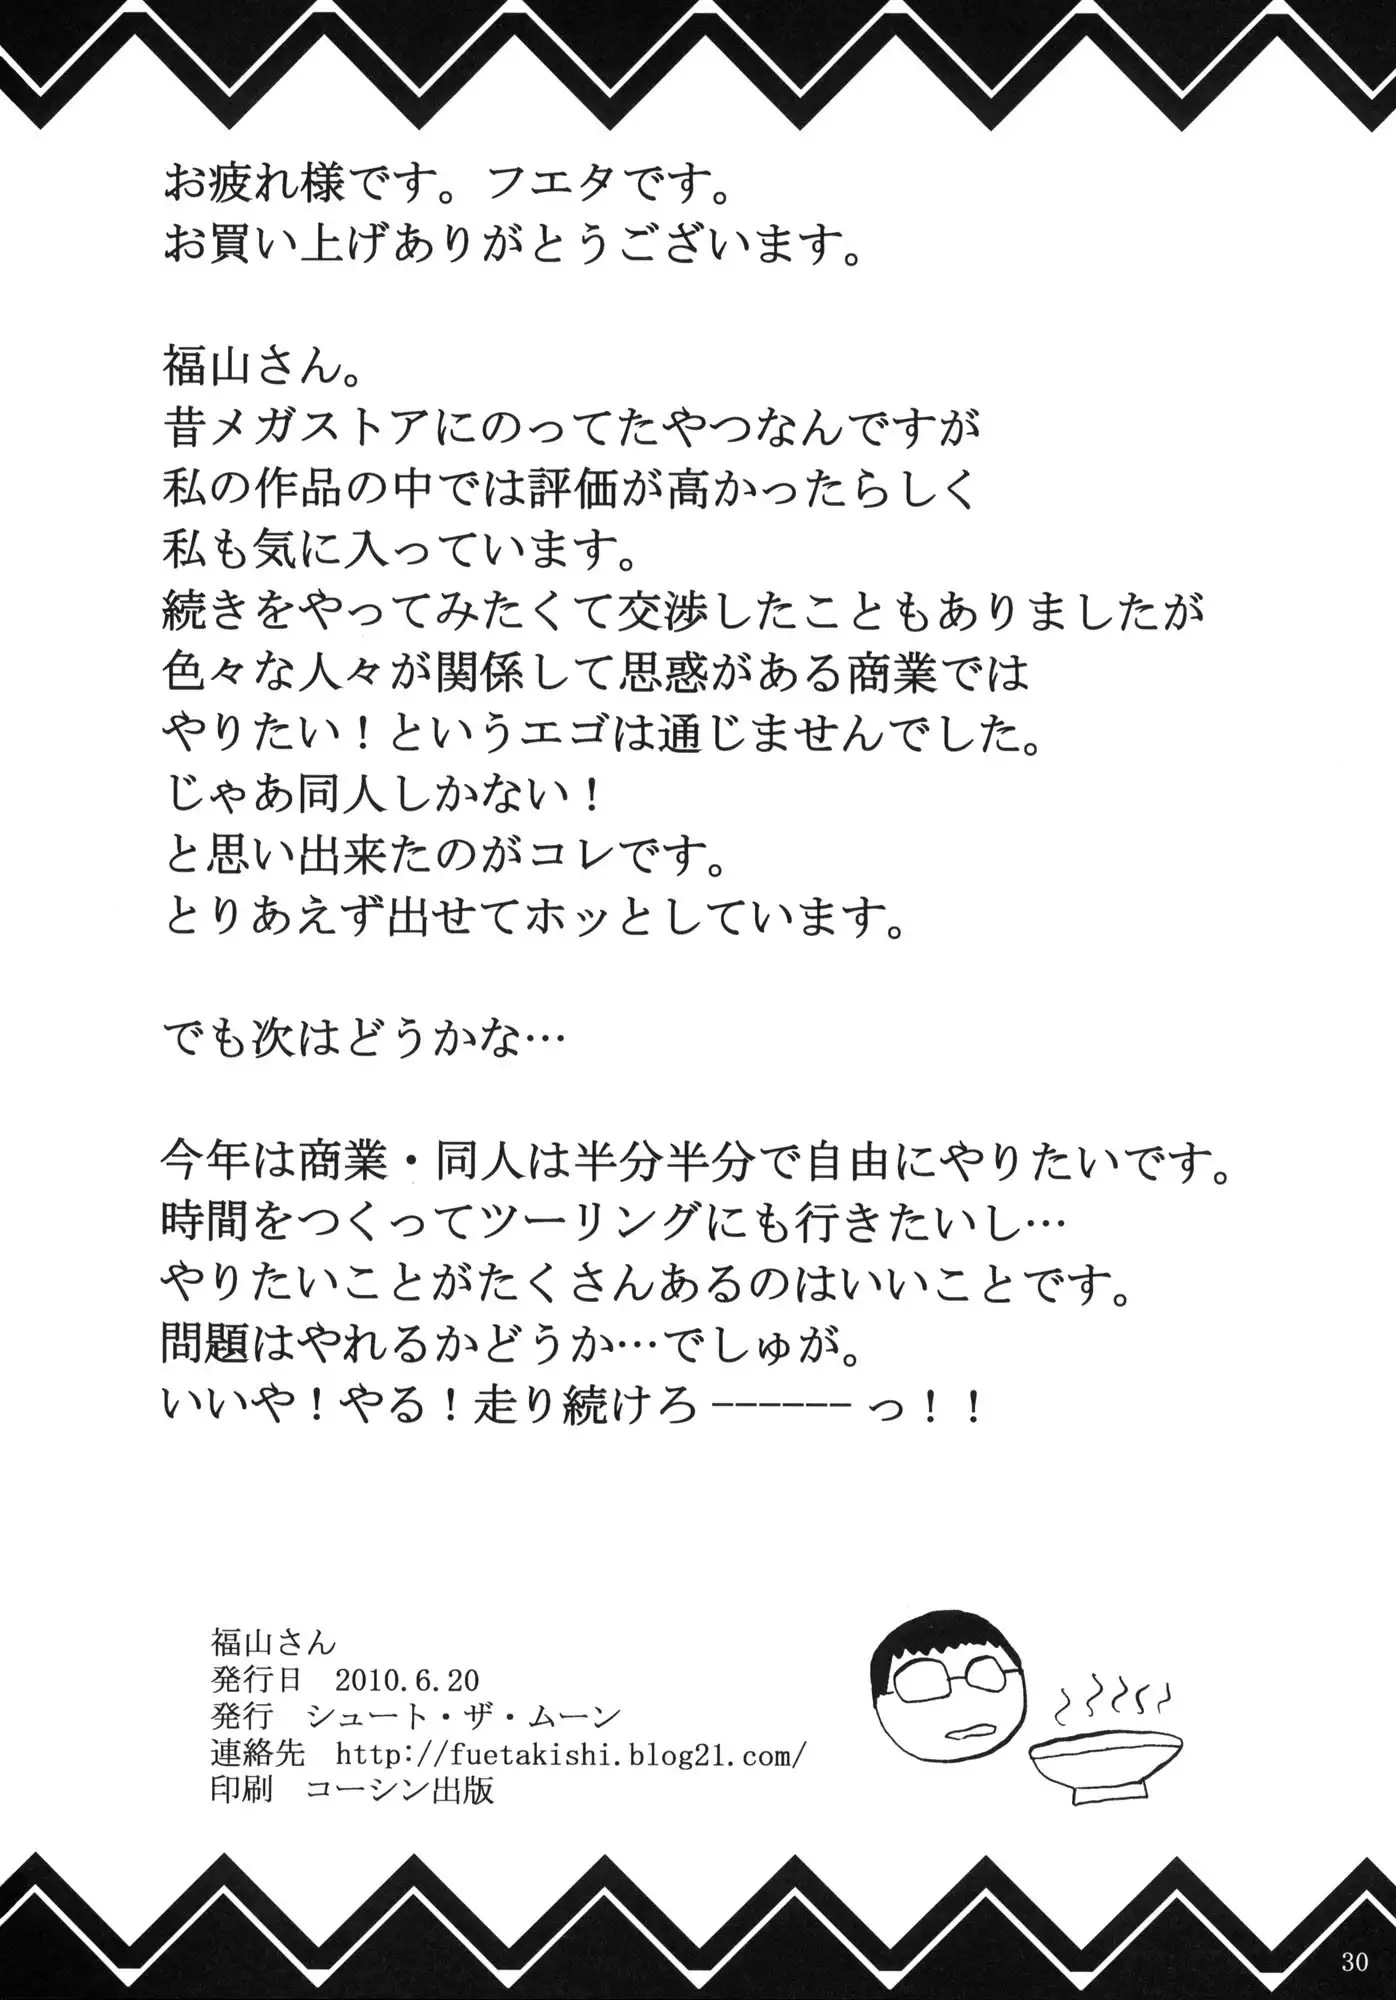 お疲れ様です。フエタです。
お買い上げありがとうございます。
福山さん。
昔メガストアにのってたやつなんですが
私の作品の中では評価が高かったらしく
私も気に入っています。
続きをやってみたくて交渉したこともありましたが
色々な人々が関係して思惑がある商業では
やりたい！というエゴは通じませんでした。
じゃあ同人しかない！
と思い出来たのがコレです。
とりあえず出せてホッとしています。
でも次はどうかな…
今年は商業・同人は半分半分で自由にやりたいです。
時間をつくってツーリングにも行きたいし…
やりたいことがたくさんあるのはいいことです。
問題はやれるかどうか…でしゅが。
いいや！やる！走り続けろ------っ！！
福山さん
発行日　2010.6.20
発行　シュート・ザ・ムーン
連絡先　http://fuetakishi.blog21.com/
印刷　コーシン出版
30